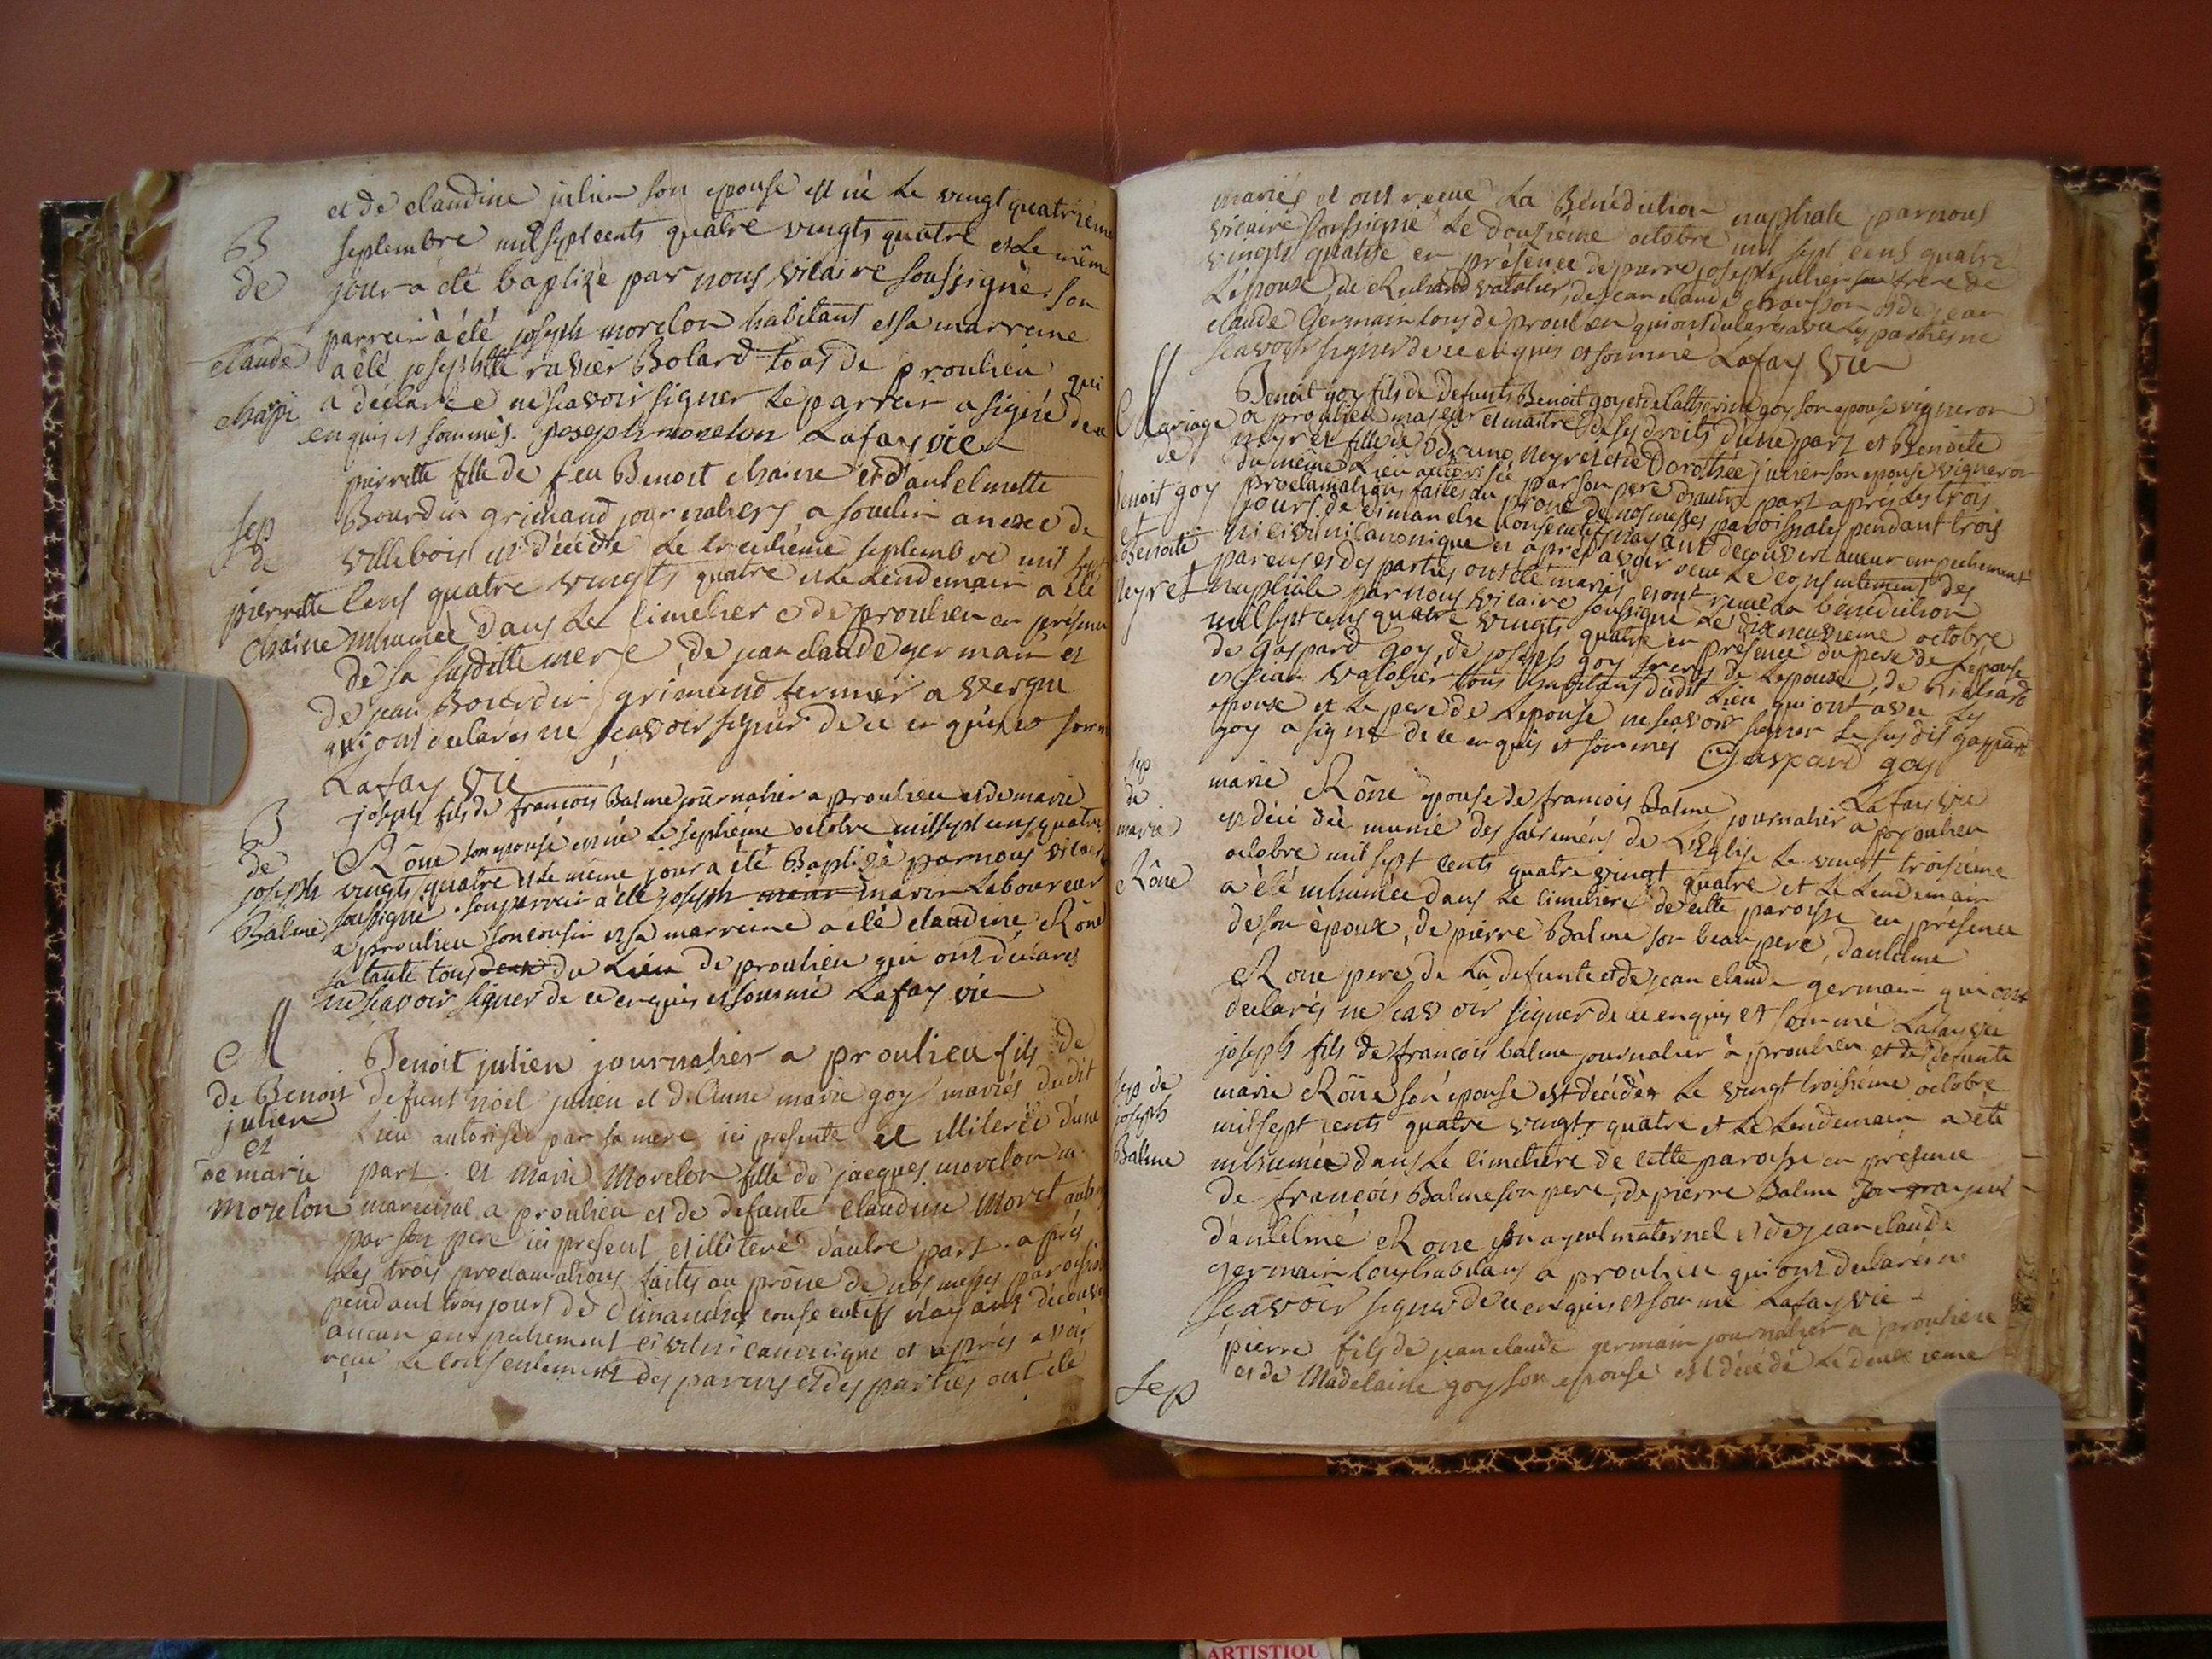 et de claudine julien son epouse est né Le vingt quatrième
B septembre mil sept cents quatre vingts quatre et Le même
de jour a été baptizé par nous vicaire soussigné. son
parrein à été joseph morelon habitant et sa marreine
claude a été josephte ravier Bolard tous de proulieu qui
chapi a déclarée ne scavoir signer Le parrein a signé de ce
enquis et sommés. joseph morelon Lafay vic
pierrette fille de feu Benoit chaine et d'antelmette
sep Bourdin grimaud journaliers a souclin anexe de
de villebois est décédée Le treisième septembre mil sept
pierrette Cens quatre vingts quatre et Le Lendemain a été
chaine inhumée dans Le cimetiere de proulieu en présence
de sa susditte mere, de jean claude germain et
de jean Bourdin grimaud fermier a vergne
qui ont declarés ne scavoir signer de ce enquis et somm
Lafay vic
B joseph fils de françois Balme journalier a proulieu et de marie
de Rône son epouse est né Le septième octobre mil sept cens quatre
joseph vingts quatre et Le même jour a été Baptizé par nous vicaire
Balme soussigné. son parrein a été joseph marin Laboureur
a proulieu son cousin et sa marreine a été claudine Rône
sa tante tous du Lieu de proulieu qui ont déclarés
ne scavoir signer de ce enquis et sommé Lafay vic
M Benoit julien journalier a proulieu fils de
de Benoit defunt noël julien et d'anne marie goy mariés dudit
julien
et Lieu autorisée par sa mere ici presente et illiterée d'une
de marie part. et marie Morelon fille de jacques morelon m.
morelon marechal a proulieu et de defunte claudine Moret
par son pere ici present et illiteré d'autre part. après
Les trois proclamations faites au prône de nos messes paroissia
pendant trois jours de dimanches consecutifs n'ayant découve
aucun empechement civil ni canonique et après avoir
reçu Le consentement des parens et des parties ont été
mariés et ont reçue La Bénédiction nuptiale par nous
vicaire soussigné Le douzieme octobre mil sept cens quatre
vingts quatre en présence de pierre joseph julien frere de
L'épouse, de Richard vatalier, de jean claude chanson et de jean
claude Germain tous de proulieu qui ont declarés avec Les parties ne
scavoir signer de ce enquis et sommé Lafay vic
Benoit goy fils de defunts Benoit goy et de catherine goy son epouse vigneron
Mariage a proulieu majeur et maitre de ses droits d'une part et Benoite
de neyret fille de Bruno neyret et de Dorothée julien son epouse vigneron
Benoit goy du même Lieu autorisée par son pere d'autre part apres Les trois
et proclamations faites au prone de nos messes paroissiales pendant trois
jours de dimanche consecutifs n'ayant découvert aucun empechement
Benoite ni civil ni canonique et après avoir reçu Le consentement des
neyret parens et des parties ont été mariés et ont reçue La bénédiction
nuptiale par nous vicaire soussigné Le dix neuvieme octobre
mil sept cens quatre vingts quatre en presence du pere de L'épouse
de gaspard goy, de joseph goy freres de L'epoux, de Richard
et jean vatalier tous habitans dudit Lieu qui ont avec Les
epoux et Le pere de L'epouse ne scavoir signer Le susdit gaspard
goy a signé de ce enquis et sommés Gaspard goy
Lafay vic
sep marie Rône epouse de françois Balme journalier a proulieu
de est décédée munie des sacremens de L'Eglise Le vingt troisième
marie octobre mil sept cents quatre vingt quatre et Le Lendemain
Rône a été inhumée dans Le cimetiere de cette paroisse en présence
de son époux, de pierre Balme son beau pere, d'antelme
Rone pere de La defunte et de jean claude germain qui ont
declarés ne scavoir signer de ce enquis et sommé Lafay vic
joseph fils de françois balme journalier à proulieu et de defunte
sep de marie Rône son épouse est décédé Le vingt troisième octobre
joseph mil sept cents quatre vingts quatre et Le Lendemain a été
Balme inhumée dans Le cimetiere de cette paroisse en présence
de françois Balme son pere, de pierre Balme
d'antelme Rone son ayeul maternel et de jean claude
germain tous habitans a proulieu qui ont declarés ne
scavoir signer de ce enquis et sommé Lafay vic
pierre fils de jean claude germain journalier a proulieu
sep et de Madelaine goy son epouse est décédé Le deuxieme
ARTISTIQU